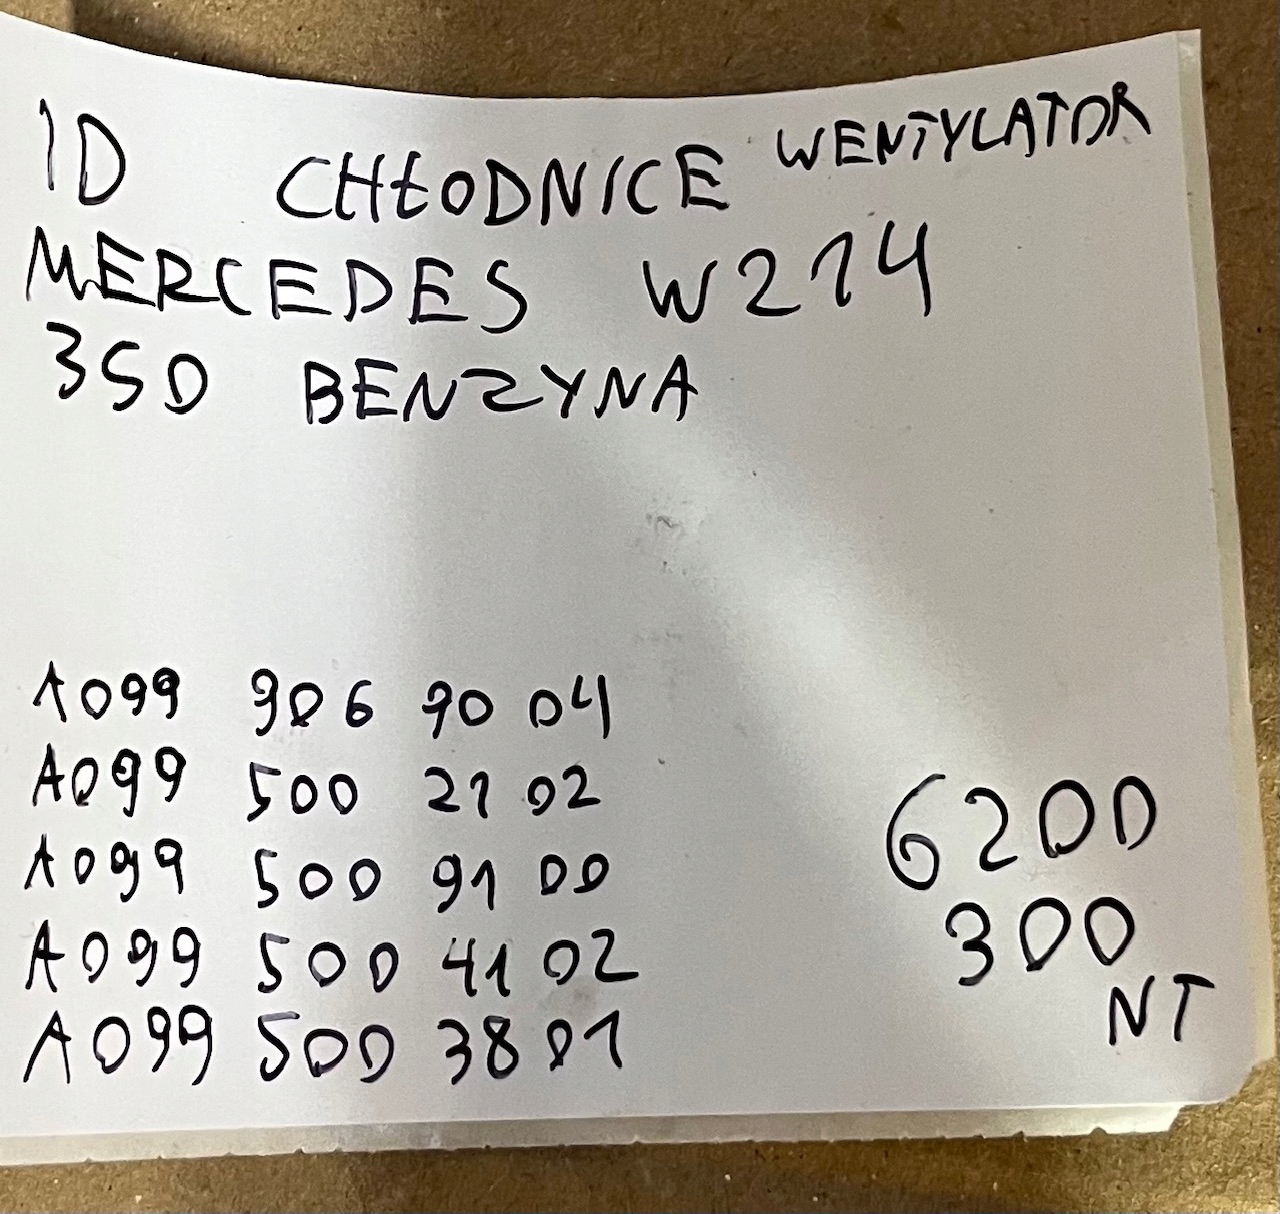 ID CHŁODNICE WENTYLATOR
MERCEDES W214
350 BENZYNA
A099 906 90 04
A099 500 21 02
A099 500 91 00
A099 500 41 02
A099 500 38 01
6200
300
NT